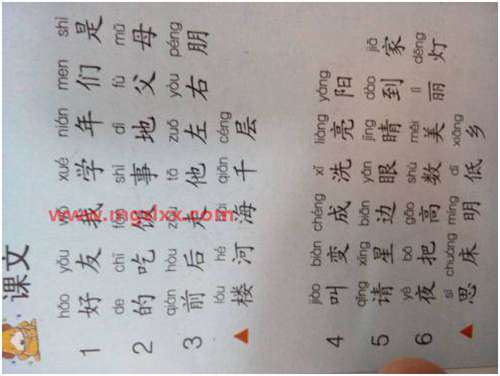 课文
hǎo yǒu wǒ xué nián men shì
1 好 友 我 学 年 们 是
de chī shì dì fù mǔ
2 的 吃 饭 事 地 父 母
qián hòu zǒu tā zuǒ yòu péng
3 前 后 走 他 左 右 朋
lóu hé qiān céng
▲ 楼 河 海 千 层
jiào biàn chéng xǐ liàng yáng
4 叫 变 成 洗 亮 阳
qǐng xīng biān yǎn jīng dào jiā
5 请 星 边 眼 睛 到 家
yè bǎ gāo shù měi lì dēng
6 夜 把 高 数 美 丽 灯
sī chuáng míng dī xiāng
▲ 思 床 明 低 乡
www.mgxlxx.com